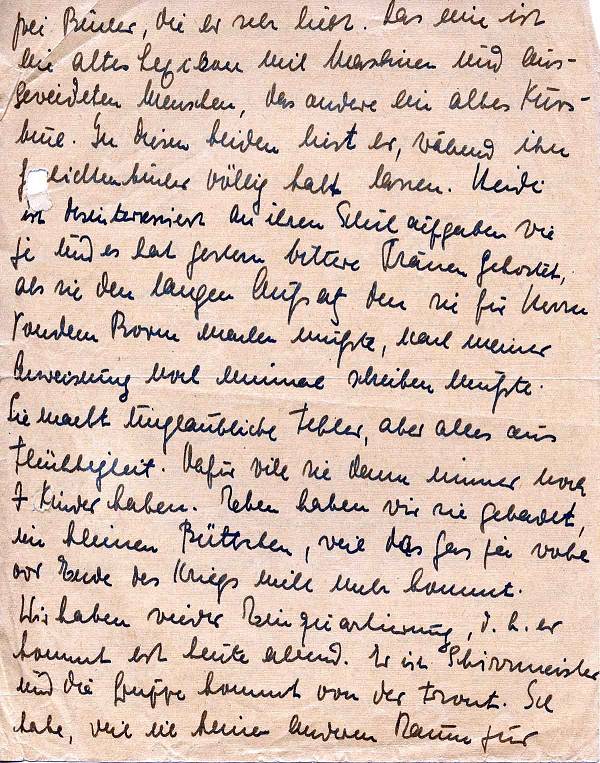 zwei Bücher, die er sehr liebt. Das eine ist
ein altes Lexikon mit Maschinen und aus-
geweideten Menschen, das andere ein altes Kurs-
buch. In diesen beiden liest er, während ihn
Geschichtenbücher völlig kalt lassen. Heidi
ist desinteressiert an ihren Schulaufgaben wie
je und es hat gestern bittere Tränen gekostet,
als sie den langen Aufsatz den sie für Herrn
Vondem Born machen mußte, nach meiner
Anweisung noch einmal schreiben mußte.
Sie macht unglaubliche Fehler, aber alles aus
Flüchtigkeit. Dafür will sie dann immer noch
7 Kinder haben. Eben haben wir sie gebadet,
im kleinen Büttchen, weil das Gas ja wohl
vor Ende des Kriegs nicht mehr kommt.
Wir haben wieder Einquartierung, d. h. er
kommt erst heute abend. Er ist Schirrmeister
und die Gruppe kommt von der Front. Ich
habe, weil ich keinen anderen Raum für